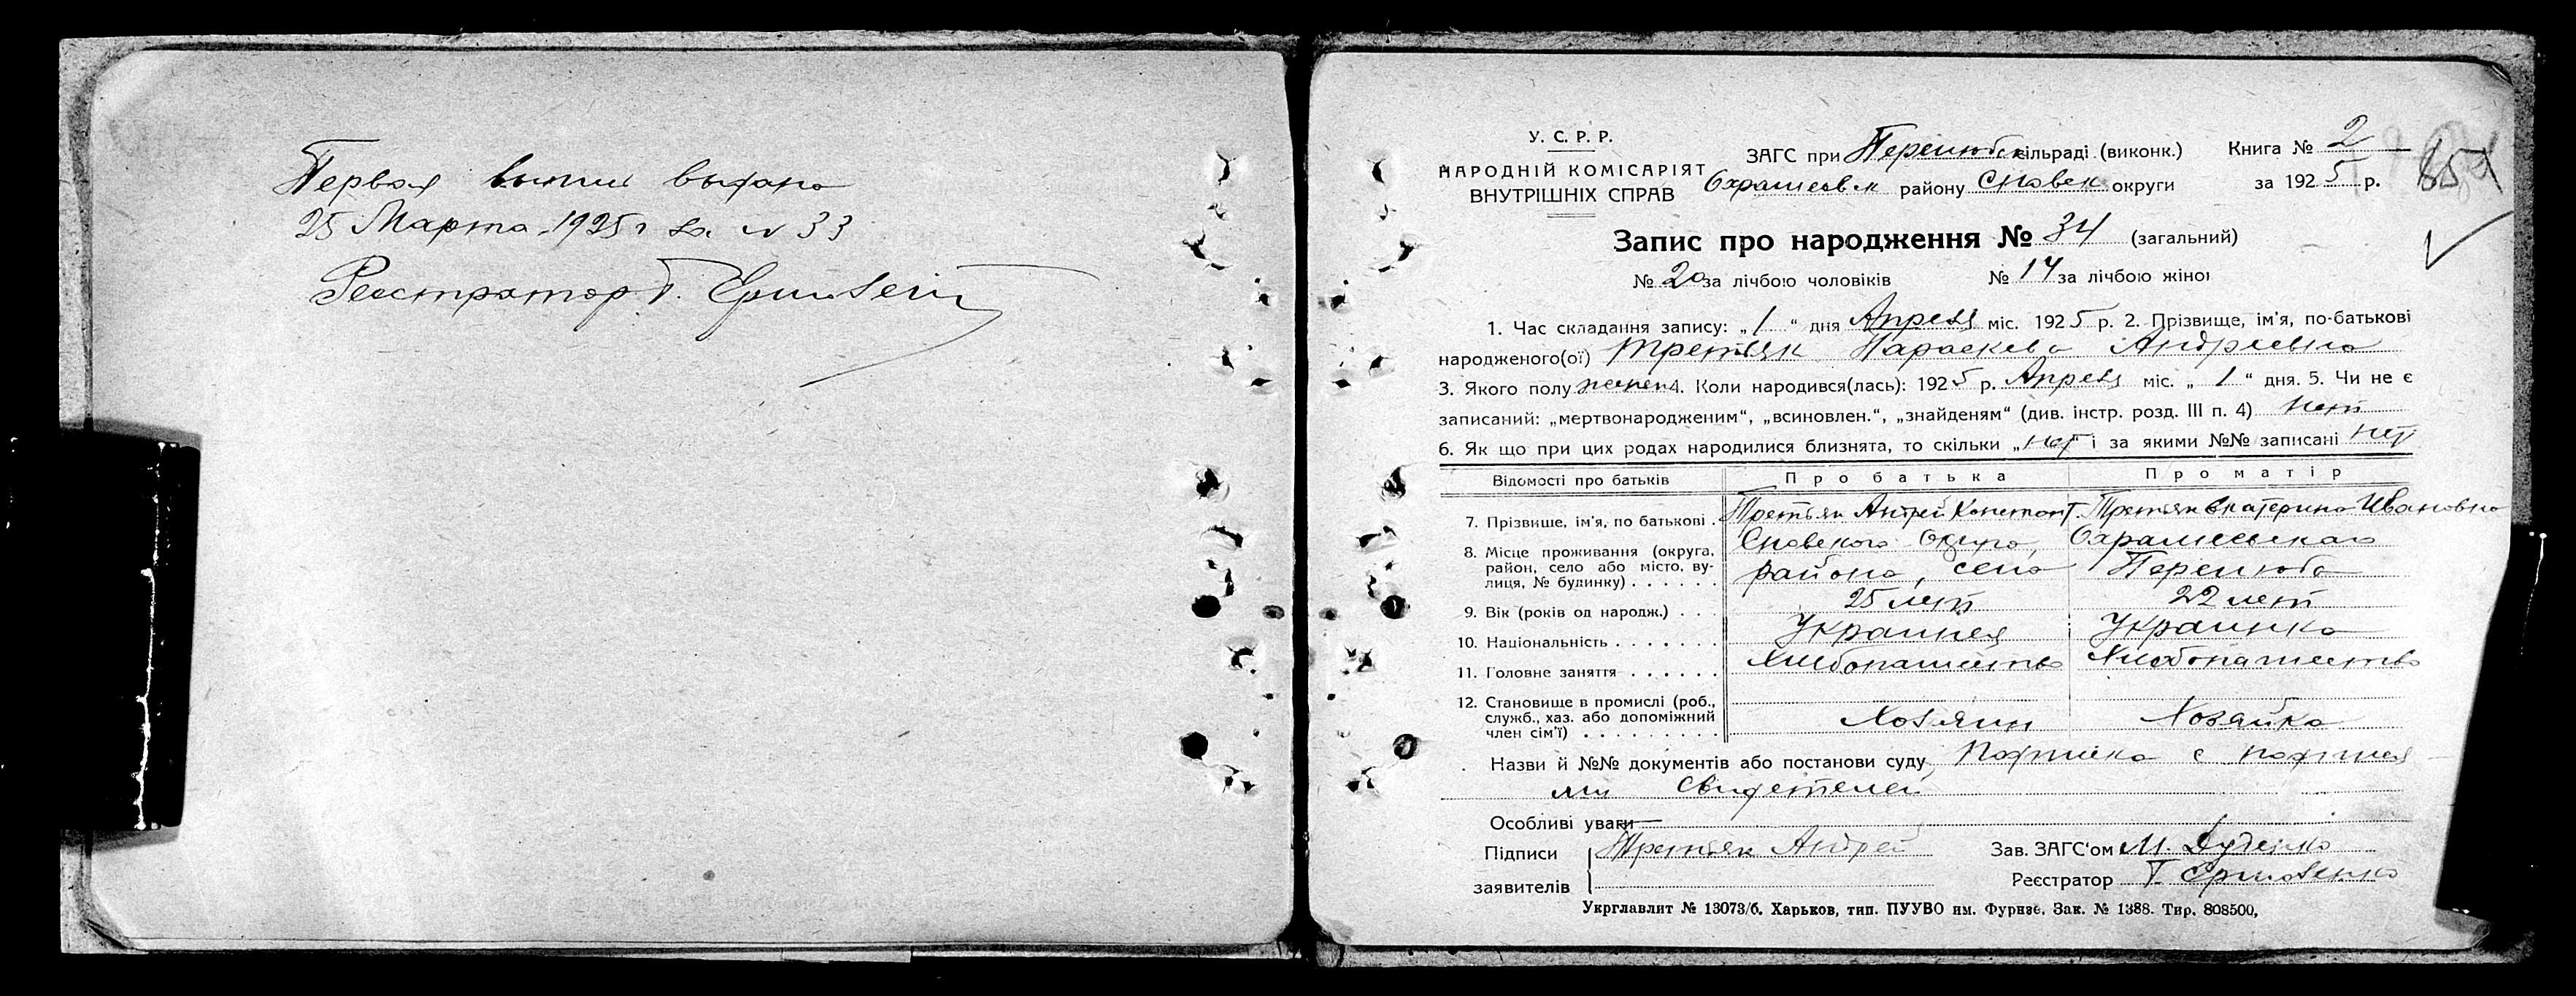 Первая выпис выдана
25 Марта 1925 г за № 33
Реестратор Г.
У. С. Р. Р.
НАРОДНІЙ КОМІСАРІЯТ
ВНУТРІШНІХ СПРАВ
ЗАГС при Перелюбск сільраді (виконк.)
районy Сновск округи
Книга № 2
за 1925 р.
85
Запис про народження № 34 (загальний)
№ 20 за лічбою чоловіків № 14 за лічбою жіно
1. Час складання запису: „1“ дня Апреля міс. 1925 р. 2. Прізвище, ім'я, по-батькові
народженого(ої) Третьяк Параскева Андреевна
3. Якого полу женск 4. Коли народився(лась): 1925 р. Апреля міс. „1“ дня. 5. Чи не є
записаний: „мертвонародженим“, „всиновлен.“, „знайденям“ (див. інстр. розд. III п. 4) нет
6. Як що при цих родах народилися близнята, то скільки „нет“ і за якими №№ записані нет
Відомості про батьків Про батька Про матір
7. Прізвище, ім'я, по батькові . Третьяк Андрей Констант. Третьяк Екатерина Ивановна
8. Місце проживання (округа, район, село або місто, вулиця, № будинку) . . . . . . Сновского Округа, района, село Перелюба
9. Вік (років од народж.) . . . 25 лет 22 лет
10. Національність . . . . . . . Украинец Украинка
11. Головне заняття . . . . . . Хлебопашество Хлебопашество
12. Становище в промислі (роб., служб., хаз. або допоміжний член сім'ї) . . . . . . . . . Хозяин Хозяйка
. Назви й №№ документів або постанови суду Подписка с подписа
ми Свидетелей
Особливі уваги —
Підписи заявителів Третьяк Андрей
Зав. ЗАГС'ом М.
Реєстратор Г.
Укрглавлит № 13073/б. Харьков, тип. ПУУВО им. Фурнзе. Зак. № 1388. Тир. 808500,